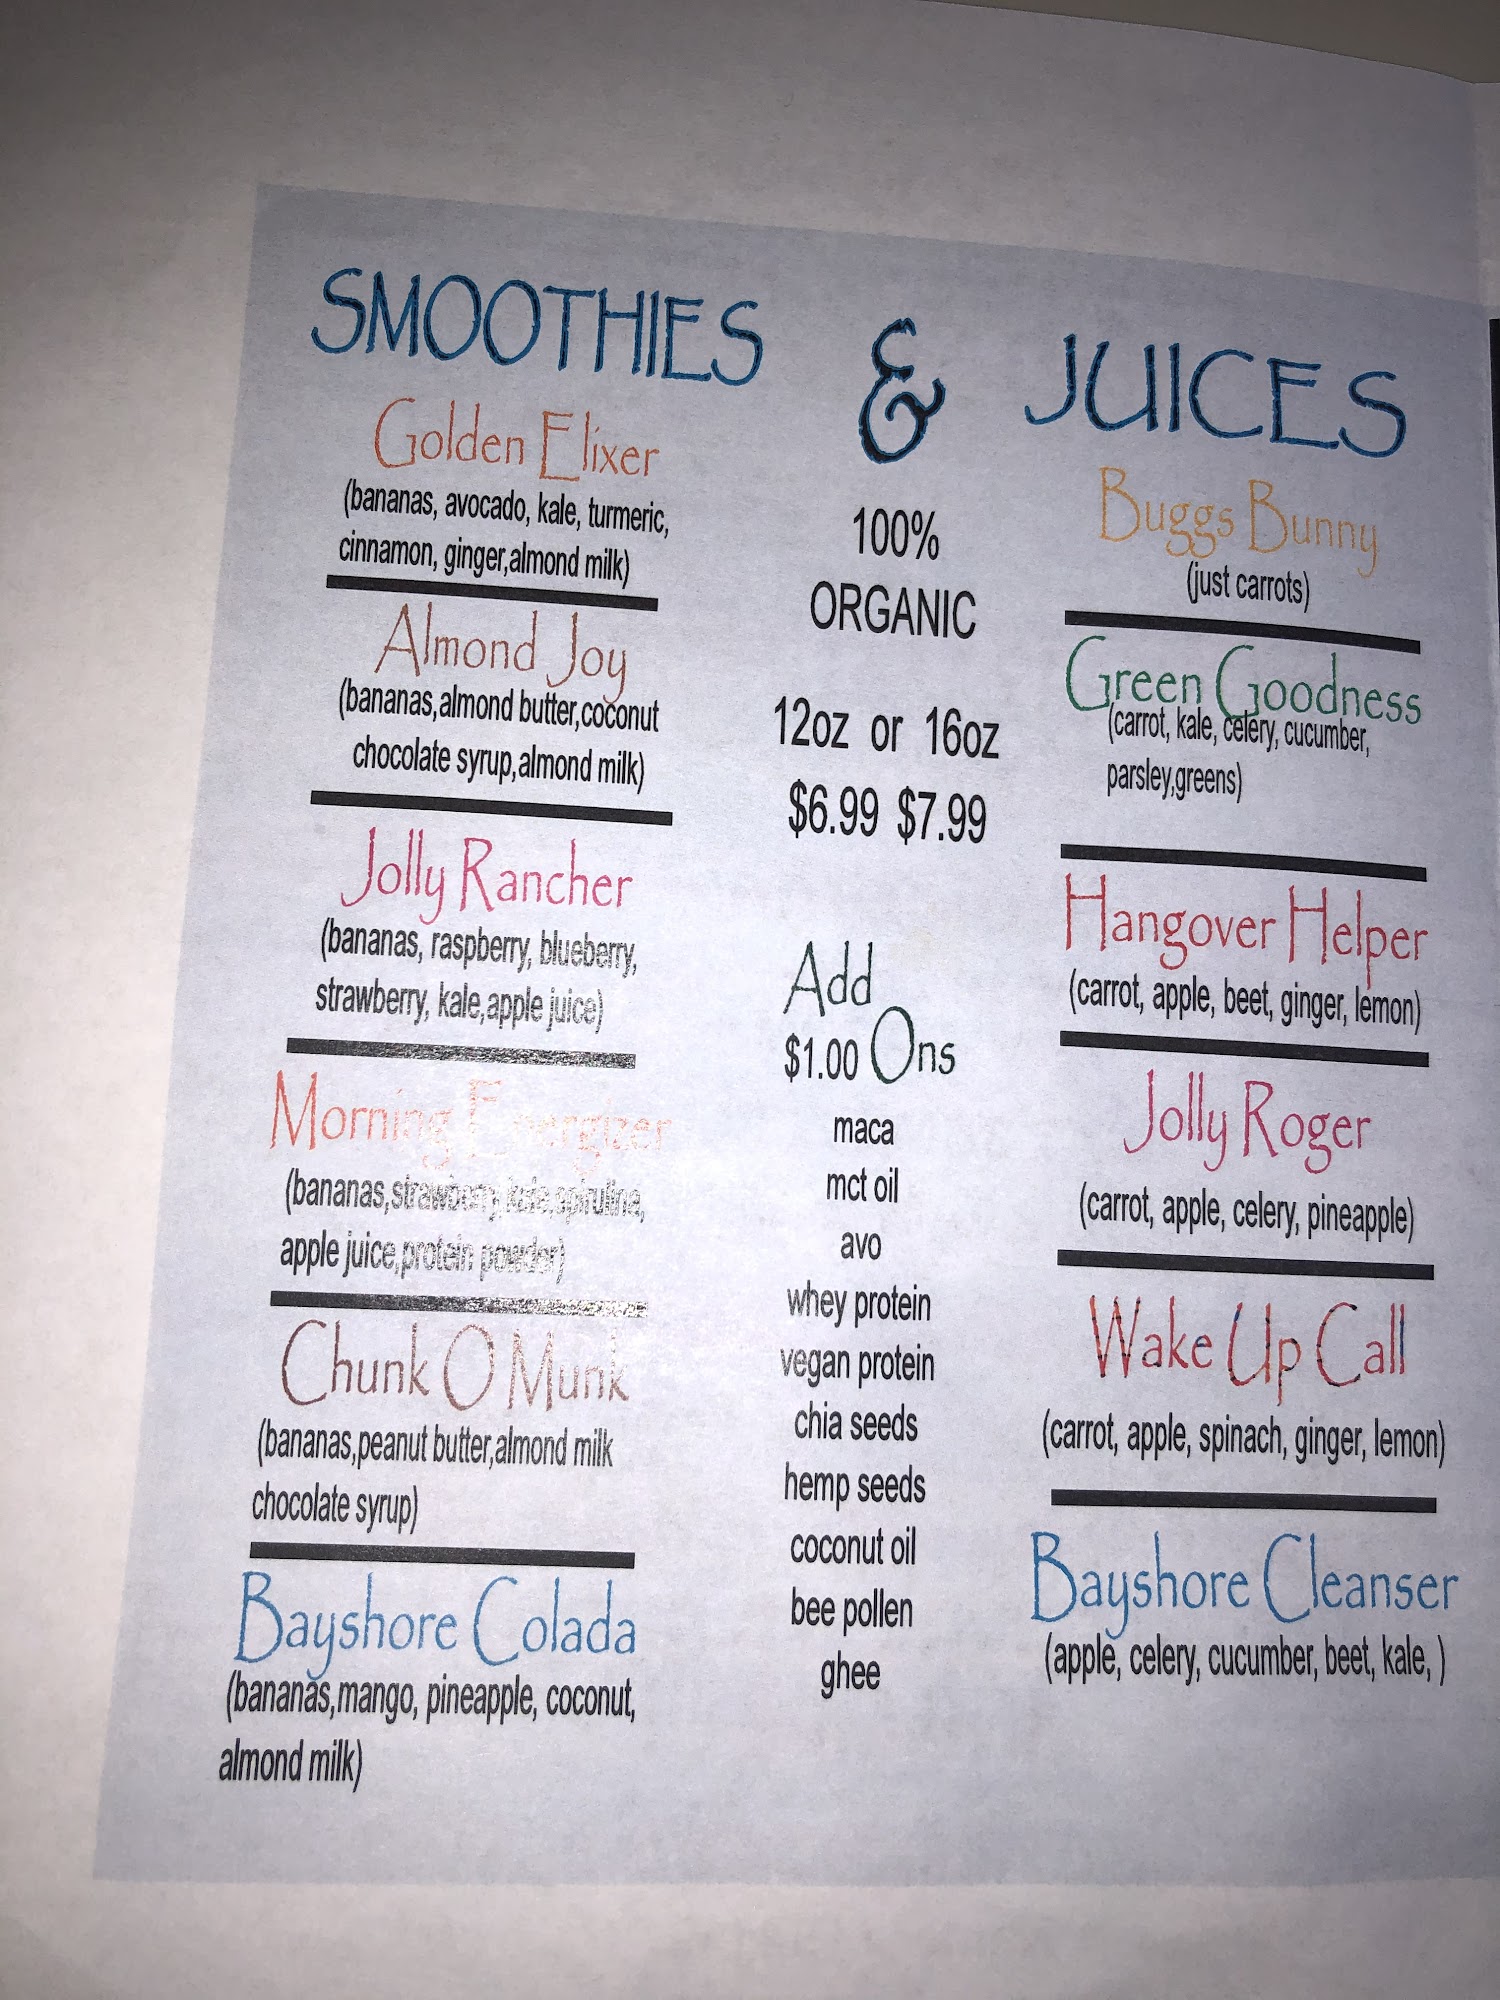 SMOOTHIES & JUICES
Golden Elixer
(bananas, avocado, kale, turmeric,
cinnamon, ginger,almond milk)
Almond Joy
(bananas,almond butter,coconut
chocolate syrup,almond milk)
Jolly Rancher
(bananas, raspberry, blueberry,
strawberry, kale,apple juice)
Morning Energizer
(bananas,strawberry,kale,spirulina,
apple juice,protein powder)
Chunk O Munk
(bananas,peanut butter,almond milk
chocolate syrup)
Bayshore Colada
(bananas,mango, pineapple, coconut,
almond milk)
100%
ORGANIC
12oz or 16oz
$6.99 $7.99
Add
$1.00 Ons
maca
mct oil
avo
whey protein
vegan protein
chia seeds
hemp seeds
coconut oil
bee pollen
ghee
Buggs Bunny
(just carrots)
Green Goodness
(carrot, kale, celery, cucumber,
parsley,greens)
Hangover Helper
(carrot, apple, beet, ginger, lemon)
Jolly Roger
(carrot, apple, celery, pineapple)
Wake Up Call
(carrot, apple, spinach, ginger, lemon)
Bayshore Cleanser
(apple, celery, cucumber, beet, kale, )